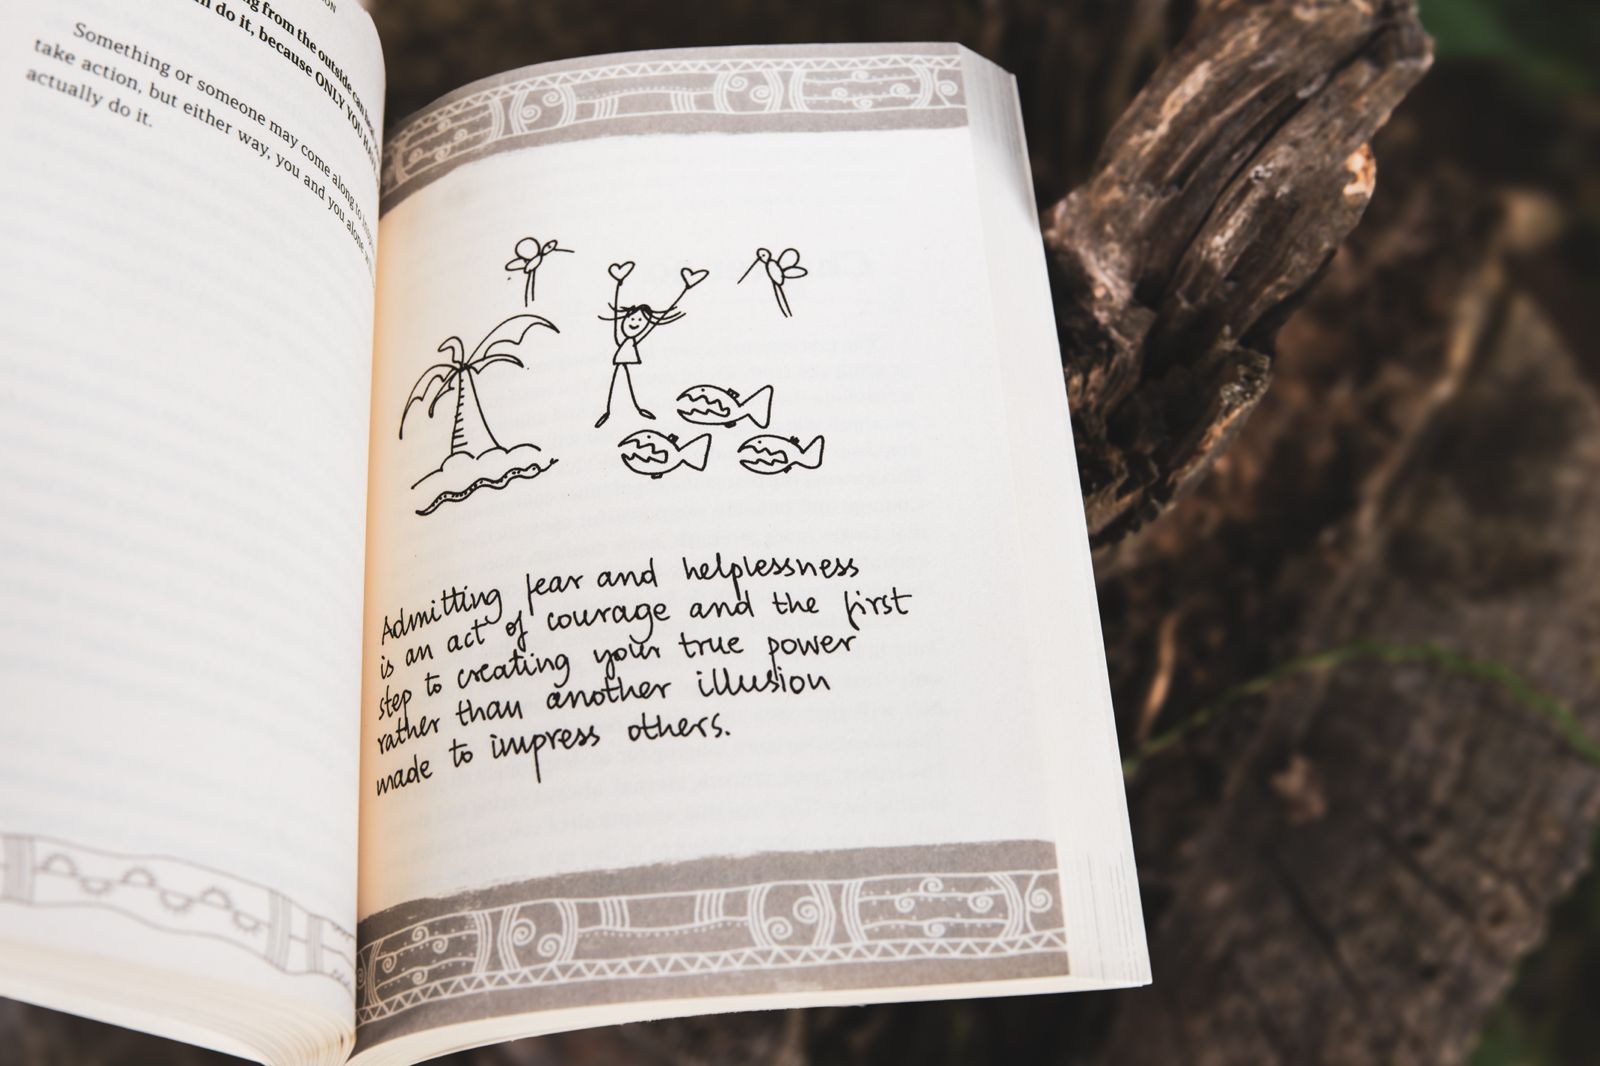 ng from the outside can
n do it, because ONLY YOU
Something or someone may come along to
take action, but either way, you and you alone
actually do it.
Admitting fear and helplessness
is an act of courage and the first
step to creating your true power
rather than another illusion
made to impress others.